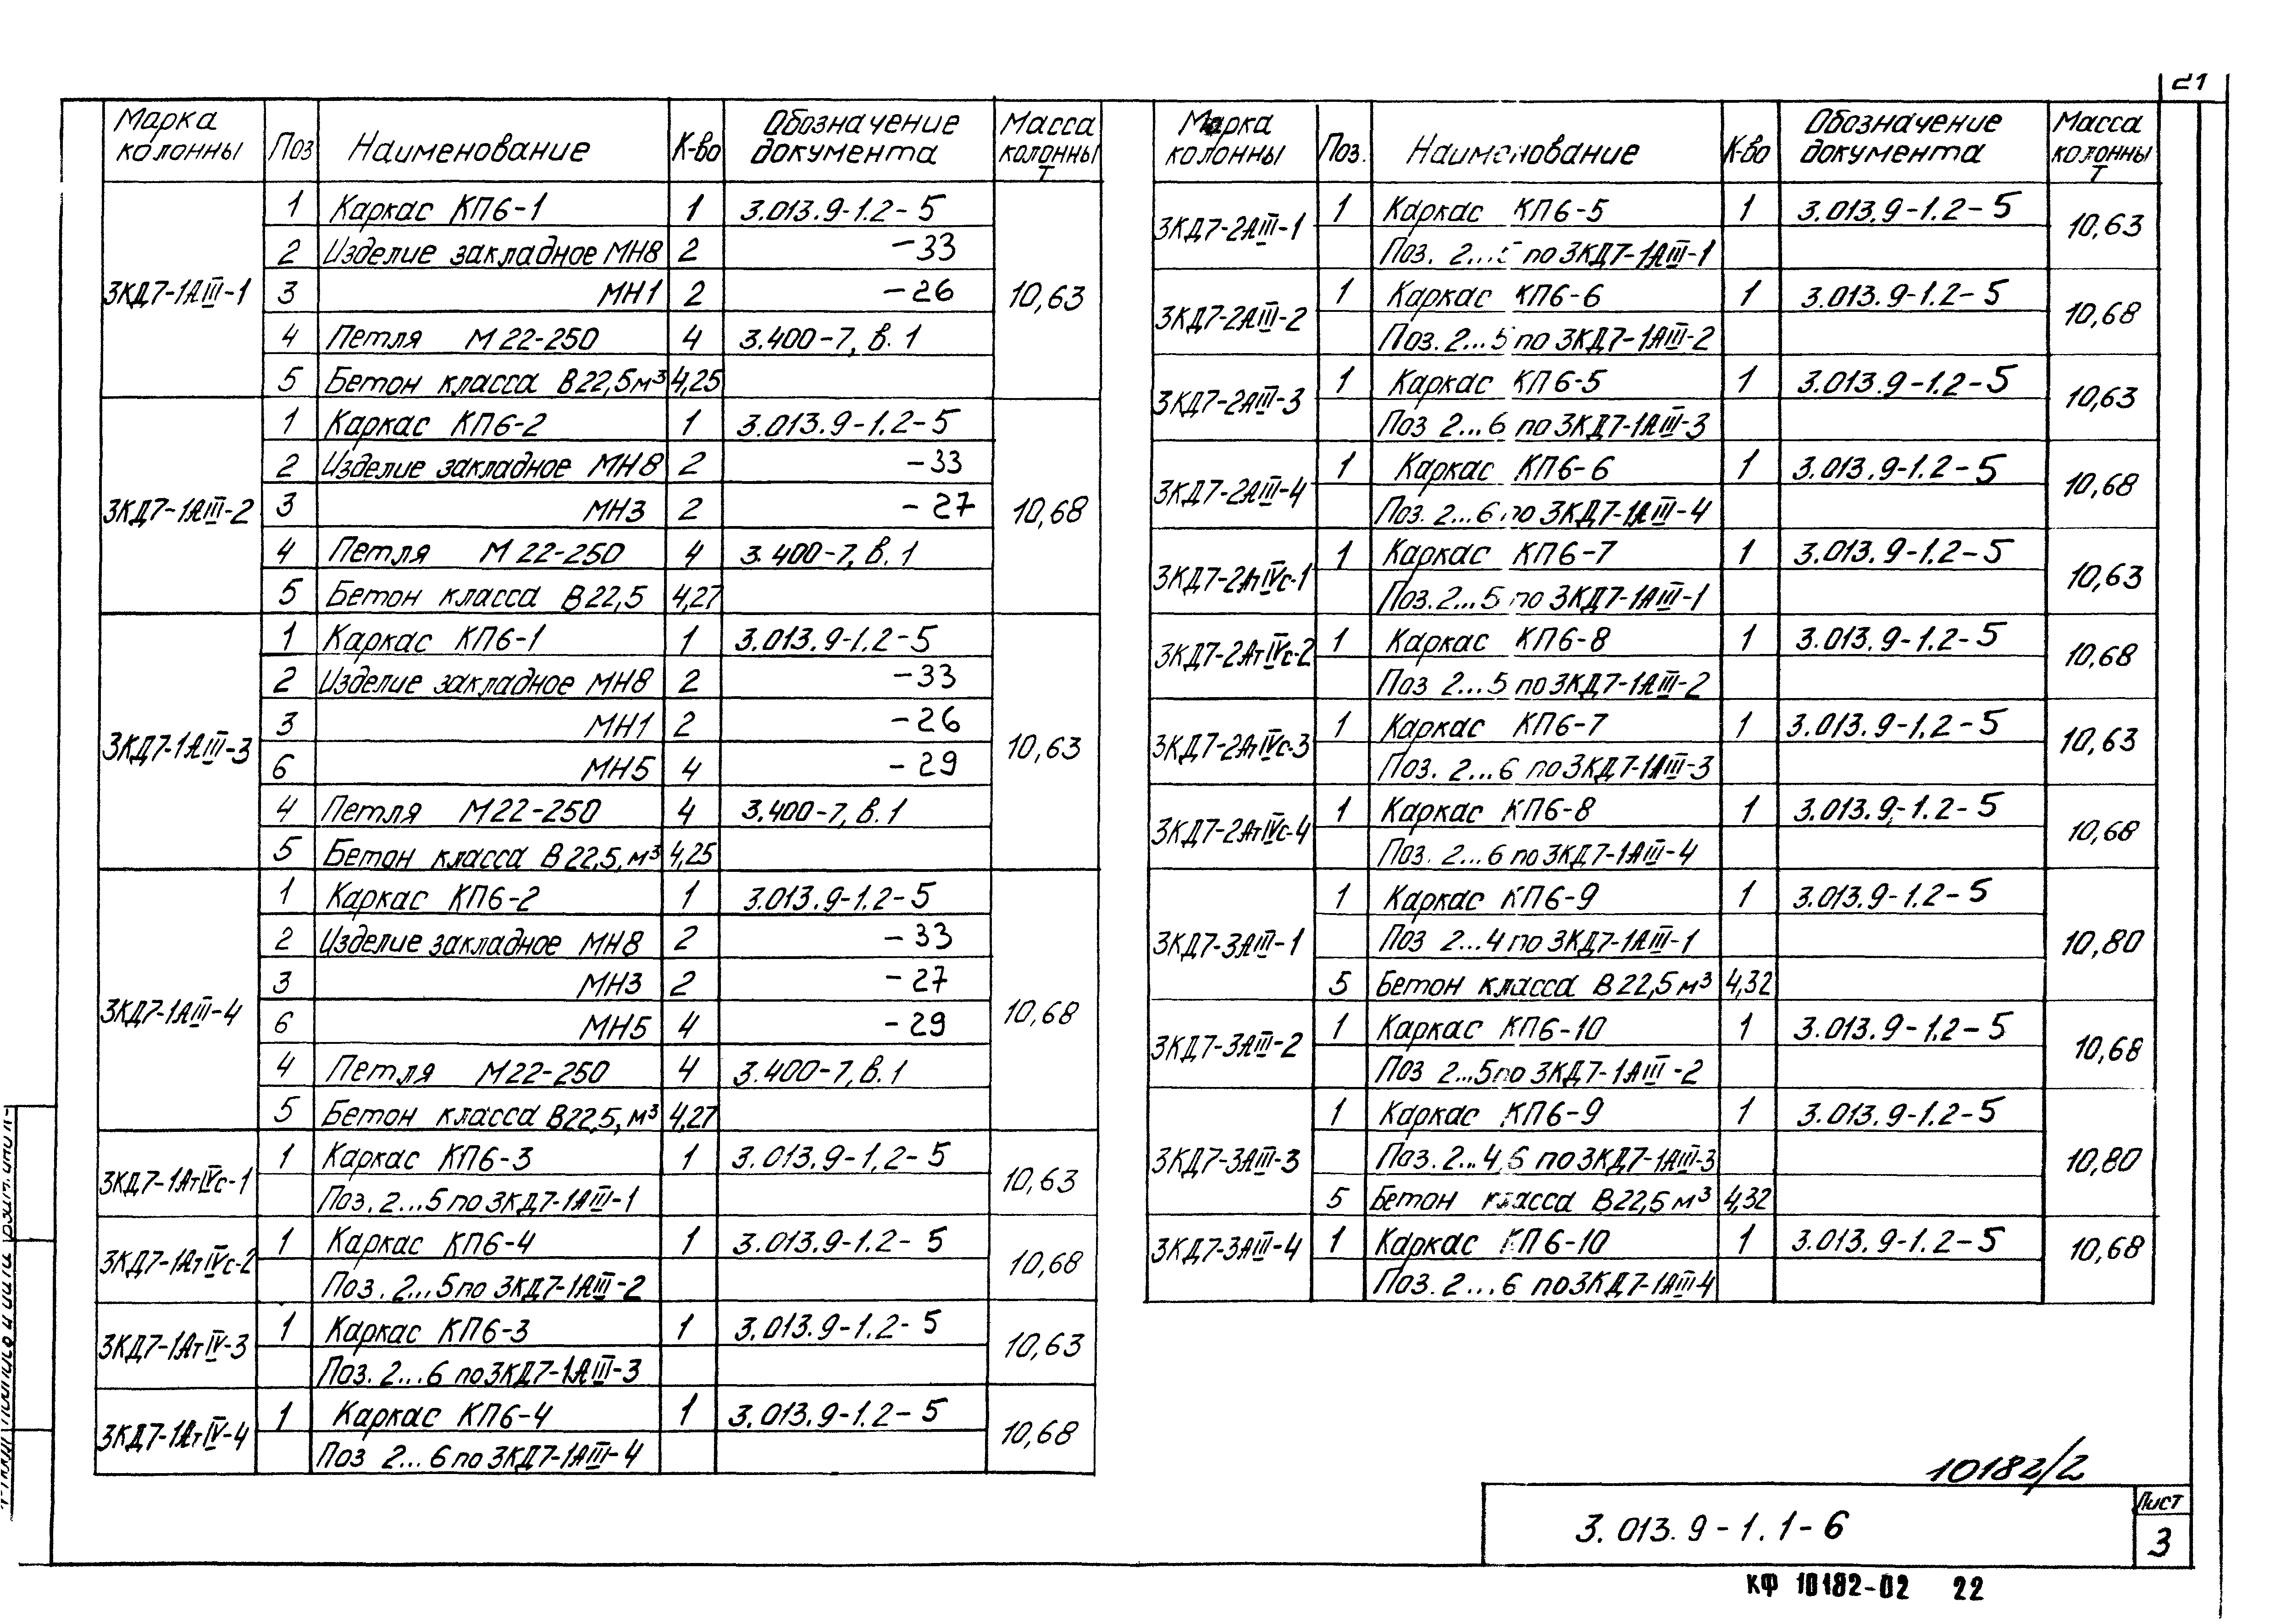 21
Марка колонны | Поз | Наименование | К-во | Обозначение документа | Масса колонны Т
3КД7-1АIII-1 | 1 | Каркас КП6-1 | 1 | 3.013.9-1.2-5 | 10,63
2 | Изделие закладное МН8 | 2 | -33
3 | МН1 | 2 | -26
4 | Петля М22-250 | 4 | 3.400-7, в.1
5 | Бетон класса В22,5 м³ | 4,25
3КД7-1АIII-2 | 1 | Каркас КП6-2 | 1 | 3.013.9-1.2-5 | 10,68
2 | Изделие закладное МН8 | 2 | -33
3 | МН3 | 2 | -27
4 | Петля М22-250 | 4 | 3.400-7, в.1
5 | Бетон класса В22,5 | 4,27
3КД7-1АIII-3 | 1 | Каркас КП6-1 | 1 | 3.013.9-1.2-5 | 10,63
2 | Изделие закладное МН8 | 2 | -33
3 | МН1 | 2 | -26
6 | МН5 | 4 | -29
4 | Петля М22-250 | 4 | 3.400-7, в.1
5 | Бетон класса В22,5, м³ | 4,25
3КД7-1АIII-4 | 1 | Каркас КП6-2 | 1 | 3.013.9-1.2-5 | 10,68
2 | Изделие закладное МН8 | 2 | -33
3 | МН3 | 2 | -27
6 | МН5 | 4 | -29
4 | Петля М22-250 | 4 | 3.400-7, в.1
5 | Бетон класса В22,5, м³ | 4,27
3КД7-1АтIVс-1 | 1 | Каркас КП6-3 | 1 | 3.013.9-1.2-5 | 10,63
Поз. 2...5 по 3КД7-1АIII-1
3КД7-1АтIVс-2 | 1 | Каркас КП6-4 | 1 | 3.013.9-1.2-5 | 10,68
Поз. 2...5 по 3КД7-1АIII-2
3КД7-1АтIV-3 | 1 | Каркас КП6-3 | 1 | 3.013.9-1.2-5 | 10,63
Поз. 2...6 по 3КД7-1АIII-3
3КД7-1АтIV-4 | 1 | Каркас КП6-4 | 1 | 3.013.9-1.2-5 | 10,68
Поз 2...6 по 3КД7-1АIII-4
Марка колонны | Поз. | Наименование | К-во | Обозначение документа | Масса колонны Т
3КД7-2АIII-1 | 1 | Каркас КП6-5 | 1 | 3.013.9-1.2-5 | 10,63
Поз. 2...5 по 3КД7-1АIII-1
3КД7-2АIII-2 | 1 | Каркас КП6-6 | 1 | 3.013.9-1.2-5 | 10,68
Поз. 2...5 по 3КД7-1АIII-2
3КД7-2АIII-3 | 1 | Каркас КП6-5 | 1 | 3.013.9-1.2-5 | 10,63
Поз 2...6 по 3КД7-1АIII-3
3КД7-2АIII-4 | 1 | Каркас КП6-6 | 1 | 3.013.9-1.2-5 | 10,68
Поз. 2...6 по 3КД7-1АIII-4
3КД7-2АтIVс-1 | 1 | Каркас КП6-7 | 1 | 3.013.9-1.2-5 | 10,63
Поз. 2...5 по 3КД7-1АIII-1
3КД7-2АтIVс-2 | 1 | Каркас КП6-8 | 1 | 3.013.9-1.2-5 | 10,68
Поз 2...5 по 3КД7-1АIII-2
3КД7-2АтIVс-3 | 1 | Каркас КП6-7 | 1 | 3.013.9-1.2-5 | 10,63
Поз. 2...6 по 3КД7-1АIII-3
3КД7-2АтIVс-4 | 1 | Каркас КП6-8 | 1 | 3.013.9-1.2-5 | 10,68
Поз. 2...6 по 3КД7-1АIII-4
3КД7-3АIII-1 | 1 | Каркас КП6-9 | 1 | 3.013.9-1.2-5 | 10,80
Поз 2...4 по 3КД7-1АIII-1
5 | Бетон класса В22,5 м³ | 4,32
3КД7-3АIII-2 | 1 | Каркас КП6-10 | 1 | 3.013.9-1.2-5 | 10,68
Поз 2...5 по 3КД7-1АIII-2
3КД7-3АIII-3 | 1 | Каркас КП6-9 | 1 | 3.013.9-1.2-5 | 10,80
Поз. 2...4,6 по 3КД7-1АIII-3
5 | Бетон класса В22,5 м³ | 4,32
3КД7-3АIII-4 | 1 | Каркас КП6-10 | 1 | 3.013.9-1.2-5 | 10,68
Поз. 2...6 по 3КД7-1АIII-4
10182/2
3.013.9-1.1-6
Лист
3
КФ 10182-02 22